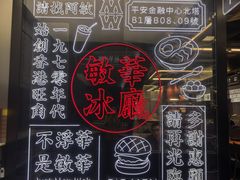 請找阿敏
平安金融中心北塔
B1層B08.09號
一九七零年代
始創香港旺角
敏華
冰廳
不浮華
是敏華
多謝惠顧
請再光臨